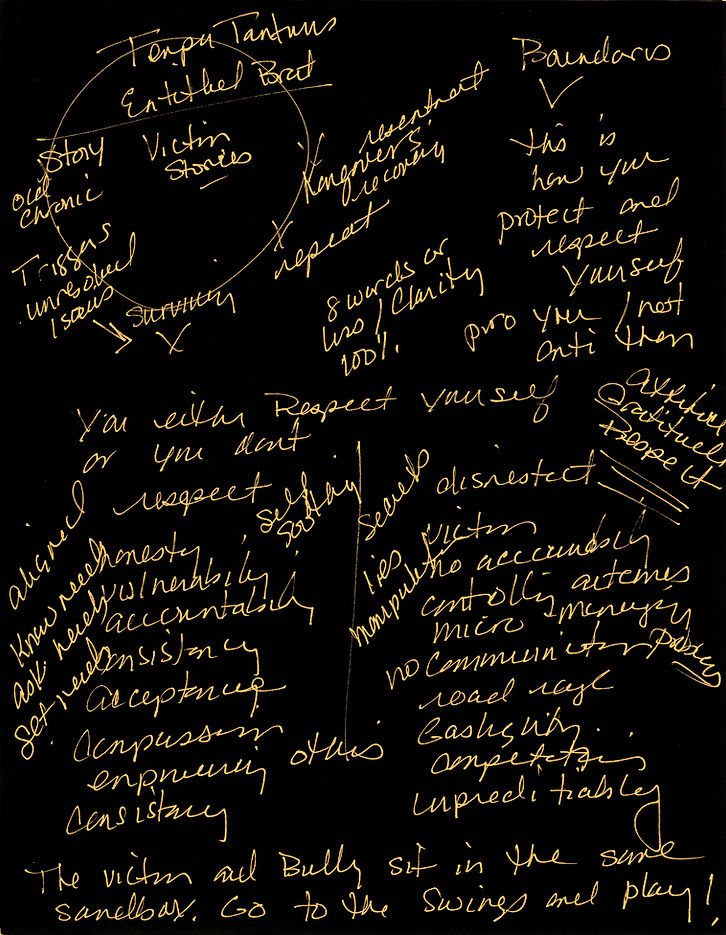 Temper Tantrums
Entitled Brat
Story
Victim
Stories
Old
Chronic
Triggers
unresolved
Issues
Surviving
X
X resentment
Hangovers
recovery
X
repeat
Boundaries
this is
how you
protect and
respect
yourself
pro you / not
anti them
8 words or
less / Clarity
100%
You either Respect yourself
or you don't
Gratitude
Respect
aligned
Know needs
ask needs
Set needs
respect
self
soothing
honesty
vulnerability
accountability
Consistency
acceptance
Compassion
empowering others
Consistency
secrets
disrespect
lies
manipulate
Victim
no accountability
controlling outcomes
micro managing
no communication
road rage
Gaslighting
competition
unpredictability
The victim and Bully sit in the same
sandbox. Go to the Swings and play!